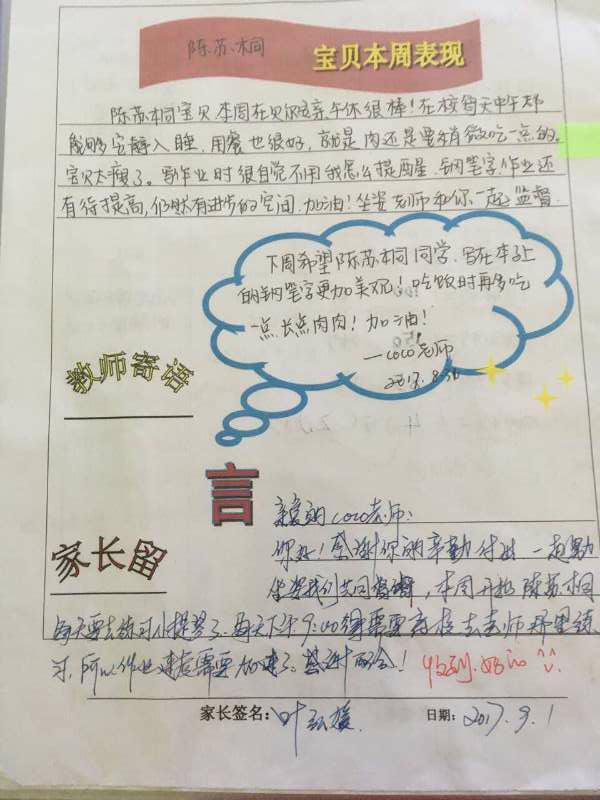 陈苏桐
宝贝本周表现
陈苏桐宝贝本周在贝尔安亲午休很棒!在校每天中午都
能够安静入睡,用餐也很好,就是肉还是要稍微吃一点的。
宝贝太瘦了。写作业时很自觉不用我怎么提醒,钢笔字作业还
有待提高,仍然有进步的空间,加油!坐姿老师和你一起监督。
下周希望陈苏桐同学,写在本上
的钢笔字更加美观!吃饭时再多吃
一点长点肉肉!加油!
—coco老师
2017.8.31
教师寄语
家长留
言
亲爱的coco老师:
你好!感谢你的辛勤付出,一起
坐姿我们共同 ,本周开始陈苏桐
每天要去练习 了,每天下午 需要 老师那里练
习,所以作业速度需要加速了。感谢配合!
收到,好的
家长签名:叶
日期:2017.9.1